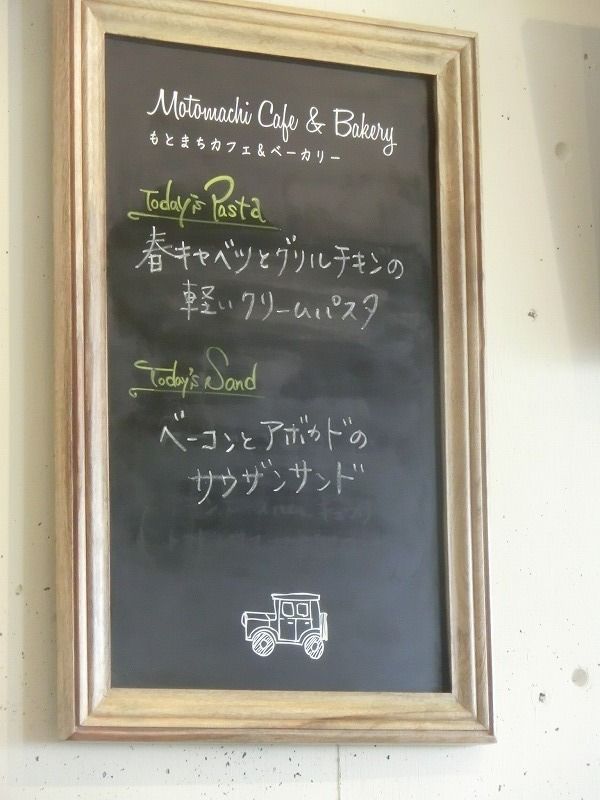 Motomachi Cafe & Bakery
もとまちカフェ&ベーカリー
Today's Pasta
春キャベツとグリルチキンの
軽いクリームパスタ
Today's Sand
ベーコンとアボカドの
サウザンサンド